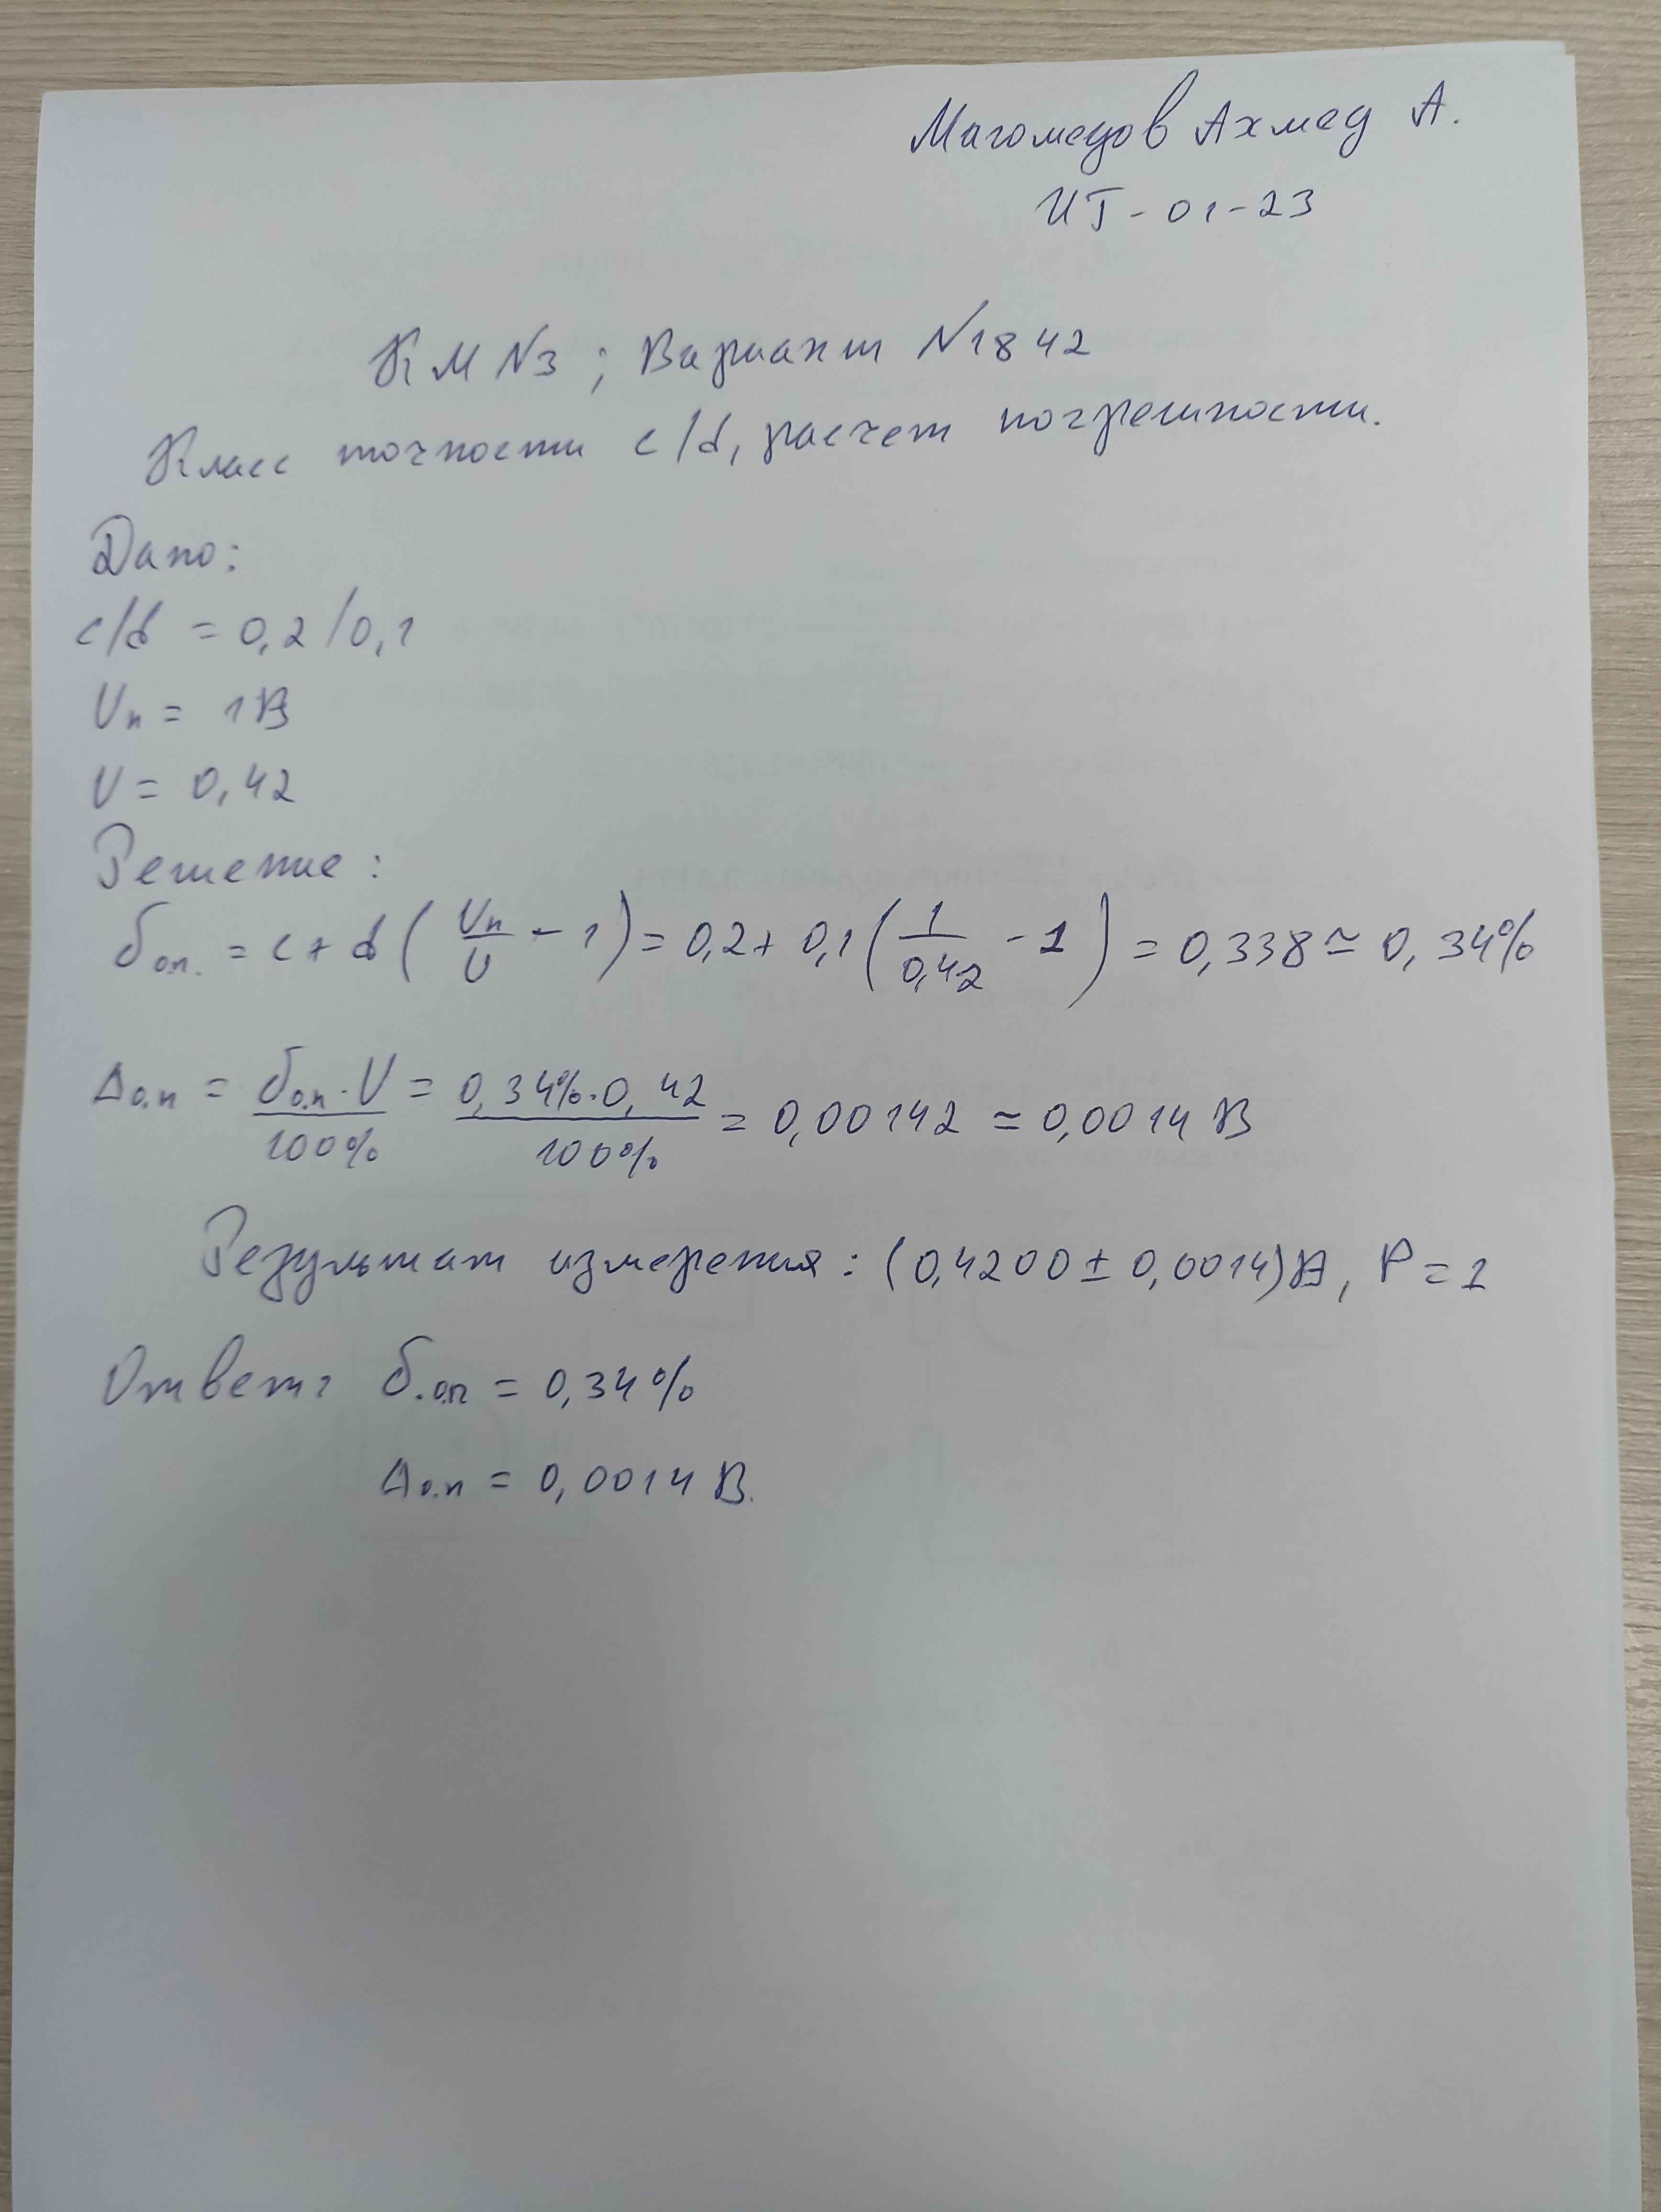 Магомедов Ахмед А.
ИТ-01-23
КМ №3; Вариант №1842
Класс точности c/d, расчет погрешности.
Дано:
c/d = 0,2/0,1
Uп = 1В
U = 0,42
Решение:
δо.п. = c + d (Uп/U - 1) = 0,2 + 0,1 (1/0,42 - 1) = 0,338 ≃ 0,34%
Δо.п = δо.п · U/100% = 0,34% · 0,42/100% = 0,00142 ≃ 0,0014 В
Результат измерения: (0,4200 ± 0,0014)В, P = 1
Ответ: δ.оп = 0,34%
Δо.п = 0,0014 В.